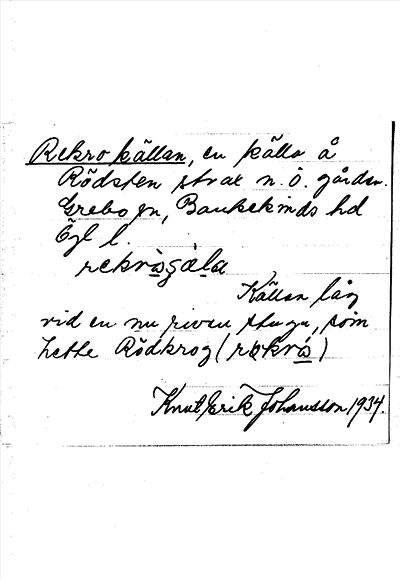 Rekro källan, en källa å
Rödsten strax n. ö. gården.
Grebo sn, Bankekinds hd
Ögl l.
rekròsgæ̀la
Källan låg
vid en nu riven stuga, som
hette Rödkrog (rekró)
Knut Erik Johansson 1934.